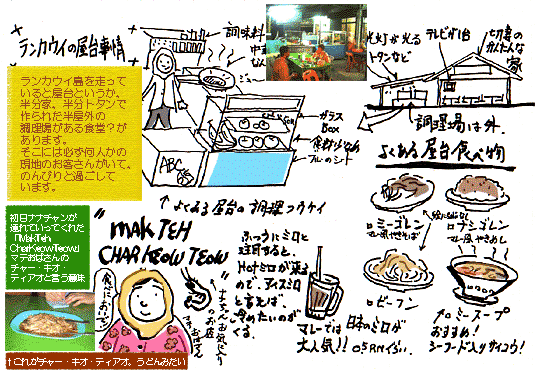 ランカウイの屋台事情
調味料
ランカウイ島を走って
いると屋台というか。
半分家、半分トタンで
作られた半屋外の
調理場がある食堂?が
あります。
そこには必ず何人かの
現地のお客さんがいて。
のんびりと過ごして
います。
ABC
ガラス
Box
ブルーのシート
↑よくある屋台の調理フウケイ
光灯が光る
トタンなど
テレビが1台
家
調理場は外。
よくある屋台食べ物
ロミーゴレン
マレー風やきそば
ロナシゴレン
マレー風やきめし
ロビーフン
ロミースープ
おすすめ!
シーフード入りサイコウ!
初日ナナチャンが
連れていってくれた
「MakTeh
CharKeowTeow」
マテおばさんの
チャー・キオ・
ティアオと言う意味
"MAK TEH
CHAR KEOW TEOW"
食べにおいで
ナナチャンお気に入り
のお店
ふつうにミロと
注文すると、
Hotミロが来る
ので、アイスミロ
と言えば、
冷めたいのが
くる。
マレーでは
大人気!!
日本のミロが
↑これがチャー・キオ・ティアオ。うどんみたい